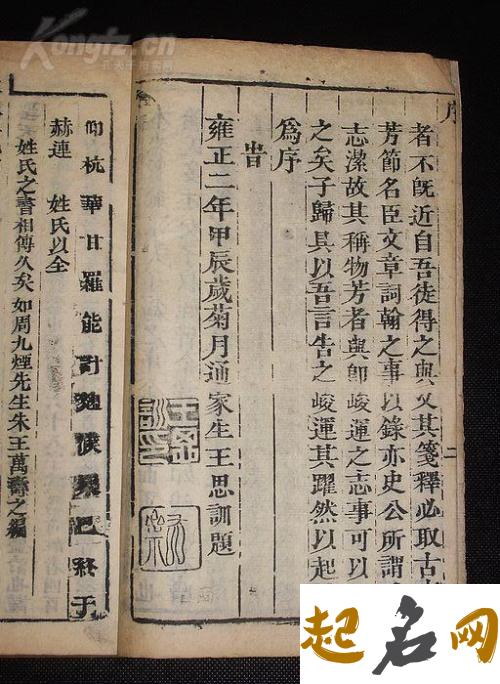 序
二
者不旣近自吾徒得之與又其箋釋必取古
芳節名臣文章詞翰之事以錄亦史公所謂
志潔故其稱物芳者與卽峻運之志事可以
之矣子歸具以吾言告之峻運其躍然以起
爲序
旹
雍正二年甲辰歲菊月通家生王思訓題
王思訓印
仰杭華甘羅能討
巴終于
赫連 姓氏以全
姓氏之書相傳久矣如周九煙先生朱王萬壽之編
Kongfz.cn
起名网